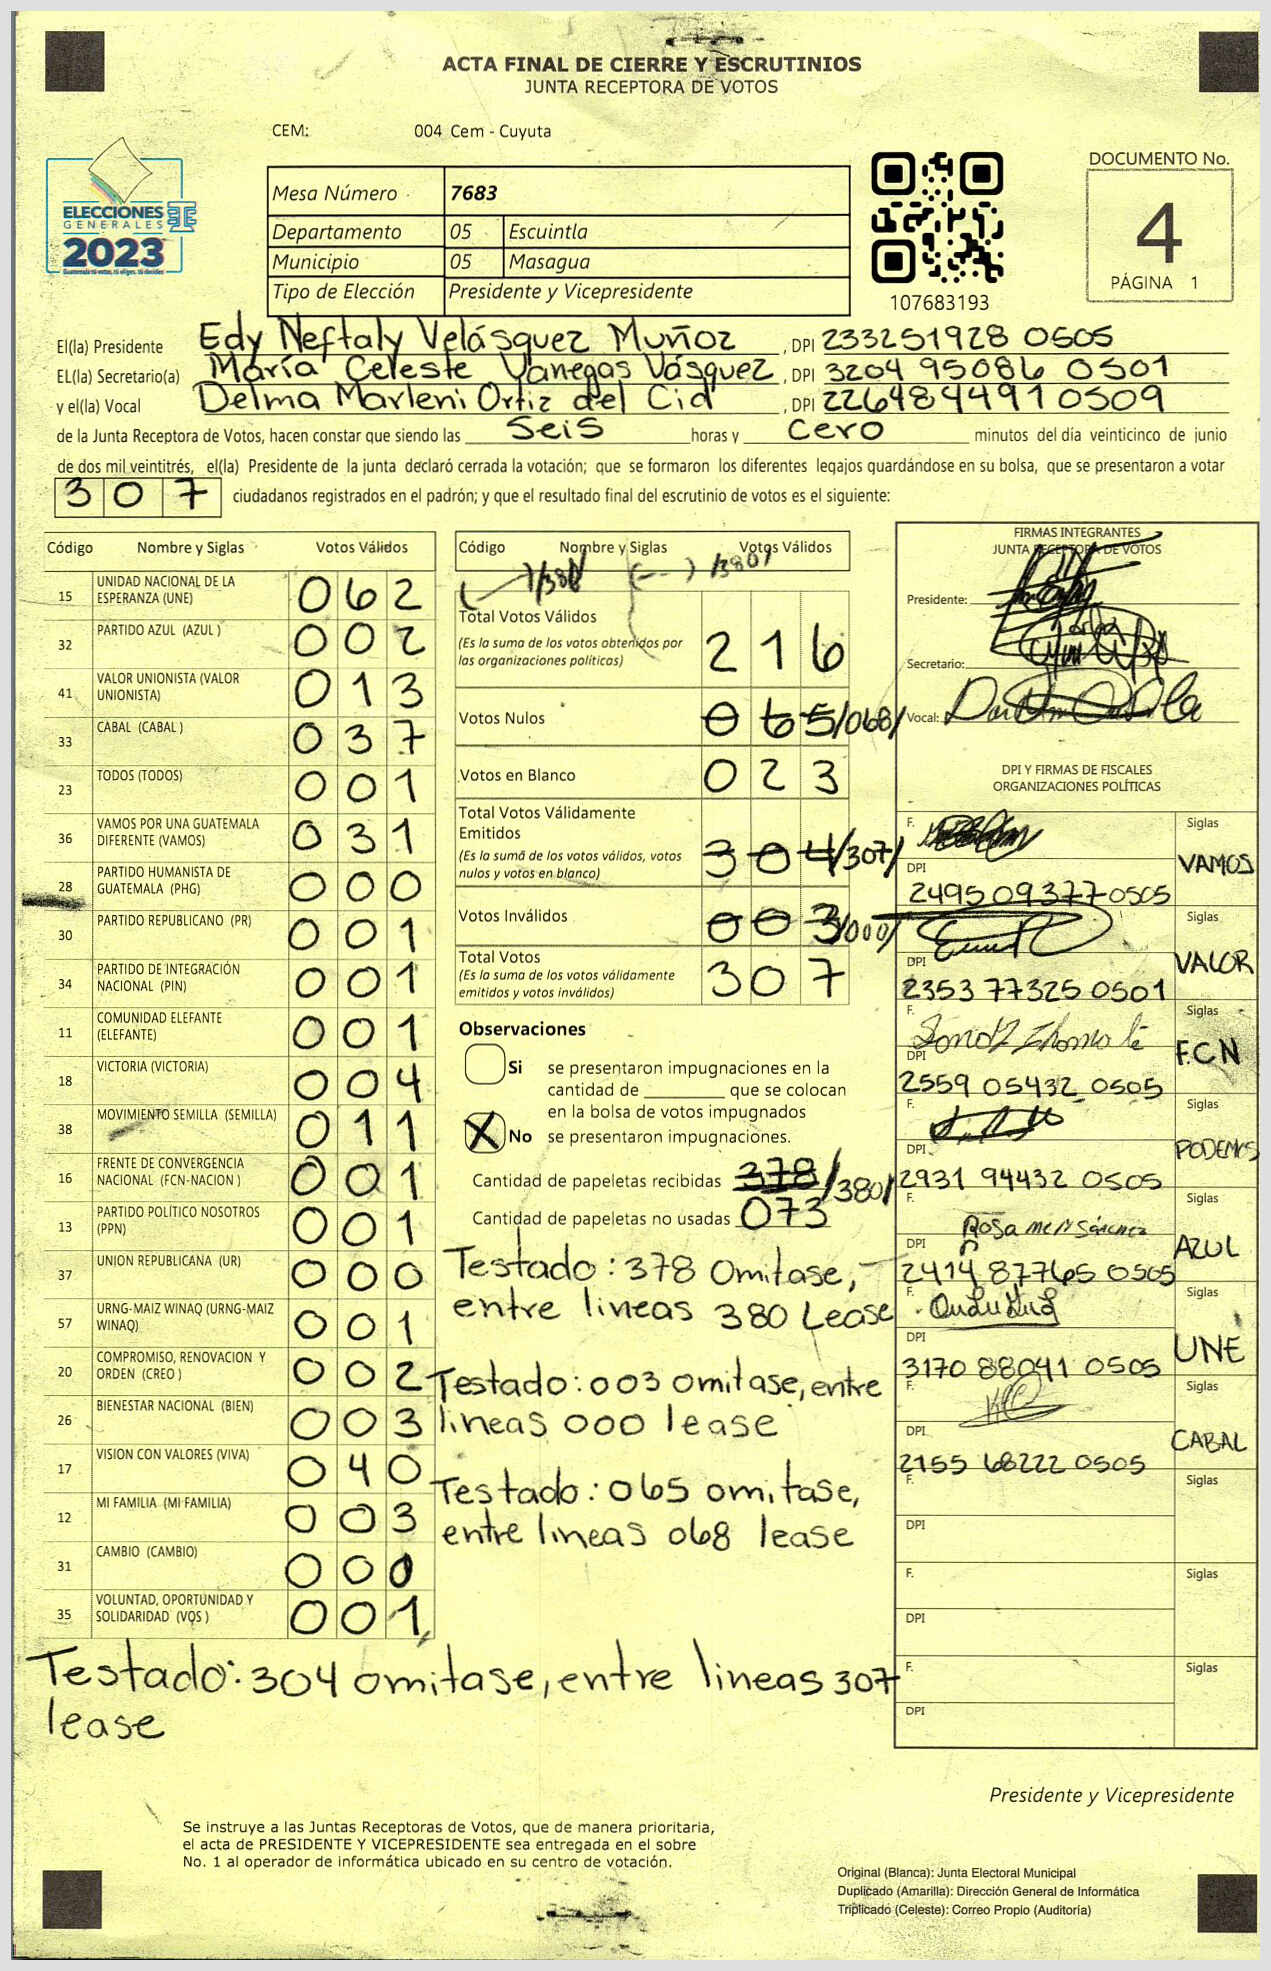 ACTA FINAL DE CIERRE Y ESCRUTINIOS
JUNTA RECEPTORA DE VOTOS
CEM: 004 Cem - Cuyuta
ELECCIONES
GENERALES
2023
Guatemala tú votas, tú eliges, tú decides
Mesa Número 7683
Departamento 05 Escuintla
Municipio 05 Masagua
Tipo de Elección Presidente y Vicepresidente
107683193
DOCUMENTO No.
4
PÁGINA 1
El(la) Presidente Edy Neftaly Velásquez Muñoz, DPI 233251928 0505
EL(la) Secretario(a) María Celeste Vanegas Vásquez, DPI 3204 95086 0501
y el(la) Vocal Delma Marleni Ortiz del Cid, DPI 2264844910509
de la Junta Receptora de Votos, hacen constar que siendo las Seis horas y Cero minutos del día veinticinco de junio
de dos mil veintitrés, el(la) Presidente de la junta declaró cerrada la votación; que se formaron los diferentes legajos guardándose en su bolsa, que se presentaron a votar
307 ciudadanos registrados en el padrón; y que el resultado final del escrutinio de votos es el siguiente:
Código Nombre y Siglas Votos Válidos
15 UNIDAD NACIONAL DE LA ESPERANZA (UNE) 062
32 PARTIDO AZUL (AZUL ) 002
41 VALOR UNIONISTA (VALOR UNIONISTA) 013
33 CABAL (CABAL ) 037
23 TODOS (TODOS) 001
36 VAMOS POR UNA GUATEMALA DIFERENTE (VAMOS) 031
28 PARTIDO HUMANISTA DE GUATEMALA (PHG) 000
30 PARTIDO REPUBLICANO (PR) 001
34 PARTIDO DE INTEGRACIÓN NACIONAL (PIN) 001
11 COMUNIDAD ELEFANTE (ELEFANTE) 001
18 VICTORIA (VICTORIA) 004
38 MOVIMIENTO SEMILLA (SEMILLA) 011
16 FRENTE DE CONVERGENCIA NACIONAL (FCN-NACION ) 001
13 PARTIDO POLÍTICO NOSOTROS (PPN) 001
37 UNION REPUBLICANA (UR) 000
57 URNG-MAIZ WINAQ (URNG-MAIZ WINAQ) 001
20 COMPROMISO, RENOVACION Y ORDEN (CREO ) 002
26 BIENESTAR NACIONAL (BIEN) 003
17 VISION CON VALORES (VIVA) 040
12 MI FAMILIA (MI FAMILIA) 003
31 CAMBIO (CAMBIO) 000
35 VOLUNTAD, OPORTUNIDAD Y SOLIDARIDAD (VOS ) 001
Código Nombre y Siglas Votos Válidos
/380/
Total Votos Válidos 216
(Es la suma de los votos obtenidos por
las organizaciones políticas)
Votos Nulos 065/068/
Votos en Blanco 023
Total Votos Válidamente
Emitidos 304/307/
(Es la suma de los votos válidos, votos
nulos y votos en blanco)
Votos Inválidos 003/000/
Total Votos 307
(Es la suma de los votos válidamente
emitidos y votos inválidos)
Observaciones
Si se presentaron impugnaciones en la
cantidad de ________ que se colocan
en la bolsa de votos impugnados
X No se presentaron impugnaciones.
Cantidad de papeletas recibidas 378/380/
Cantidad de papeletas no usadas 073
Testado: 378 Omitase,
entre lineas 380 Lease
Testado: 003 omitase, entre
lineas 000 lease
Testado: 065 omitase,
entre lineas 068 lease
Testado: 304 omitase, entre lineas 307
lease
FIRMAS INTEGRANTES
JUNTA RECEPTORA DE VOTOS
Presidente:
Secretario:
Vocal:
DPI Y FIRMAS DE FISCALES
ORGANIZACIONES POLÍTICAS
F. Siglas VAMOS
DPI 2495 09377 0505
F. Siglas VALOR
DPI 2353 77325 0501
F. Siglas F.C.N
DPI 2559 05432 0505
F. Siglas PODEMOS
DPI 2931 94432 0505
F. Rosa Siglas AZUL
DPI 2414 87765 0505
F. Siglas UNE
DPI 3170 88041 0505
F. Siglas CABAL
DPI 2155 68222 0505
F. Siglas
DPI
F. Siglas
DPI
F. Siglas
DPI
Presidente y Vicepresidente
Se instruye a las Juntas Receptoras de Votos, que de manera prioritaria,
el acta de PRESIDENTE Y VICEPRESIDENTE sea entregada en el sobre
No. 1 al operador de informática ubicado en su centro de votación.
Original (Blanca): Junta Electoral Municipal
Duplicado (Amarilla): Dirección General de Informática
Triplicado (Celeste): Correo Propio (Auditoría)